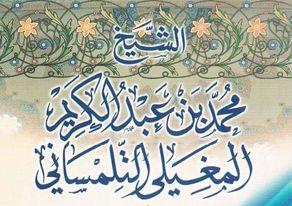 الشَّيْخ
مُحَمَّد بْن عَبْدُ الكَرِيْم
المَغِيلِي التِّلِمْسَانِي